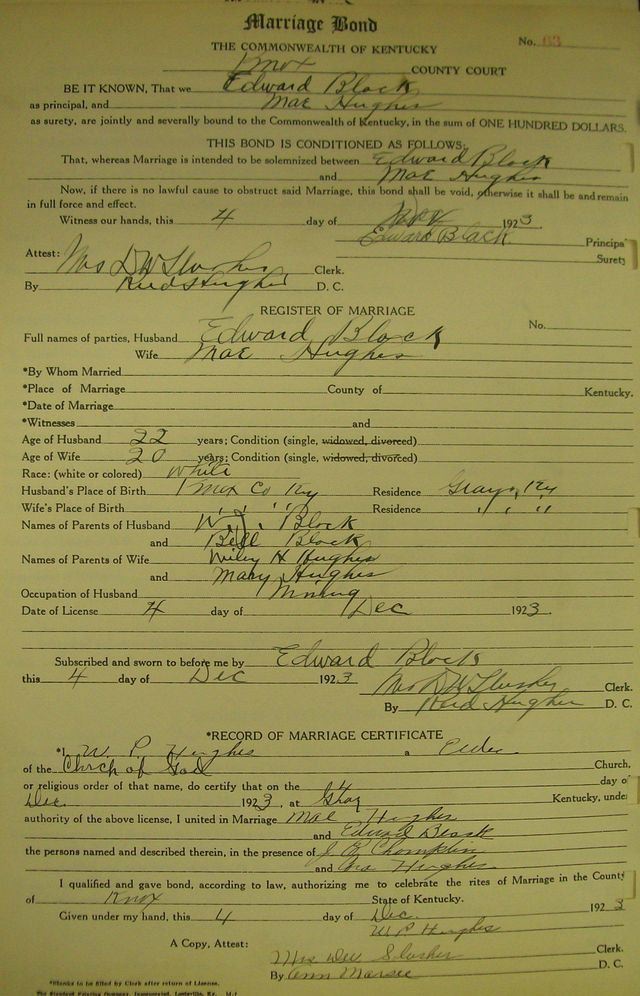 Marriage Bond
No. 63
THE COMMONWEALTH OF KENTUCKY
Knox COUNTY COURT
BE IT KNOWN, That we Edward Black
as principal, and Mae Hughes
as surety, are jointly and severally bound to the Commonwealth of Kentucky, in the sum of ONE HUNDRED DOLLARS.
THIS BOND IS CONDITIONED AS FOLLOWS:
That, whereas Marriage is intended to be solemnized between Edward Black
and Mae Hughes
Now, if there is no lawful cause to obstruct said Marriage, this bond shall be void, otherwise it shall be and remain
in full force and effect.
Witness our hands, this 4 day of Dec 1923
Edward Black Principa
Surety
Attest: Mrs D W Slusher Clerk.
By Reed Hughes D. C.
REGISTER OF MARRIAGE
No.
Full names of parties, Husband Edward Black
Wife Mae Hughes
*By Whom Married
*Place of Marriage County of Kentucky.
*Date of Marriage
*Witnesses and
Age of Husband 22 years; Condition (single, widowed, divorced)
Age of Wife 20 years; Condition (single, widowed, divorced)
Race: (white or colored) White
Husband's Place of Birth Knox Co Ky Residence Grays, Ky
Wife's Place of Birth " " " Residence " "
Names of Parents of Husband W. J. Black
and Bell Black
Names of Parents of Wife Wiley H Hughes
and Mary Hughes
Occupation of Husband Mining
Date of License 4 day of Dec 1923.
Subscribed and sworn to before me by Edward Black
this 4 day of Dec 1923 Mrs D W Slusher Clerk.
By Reed Hughes D. C.
*RECORD OF MARRIAGE CERTIFICATE
*I W. P. Hughes a Elder
of the Church of God Church,
or religious order of that name, do certify that on the 4 day o
Dec. 1923, at Gray Kentucky, unde
authority of the above license, I united in Marriage Mae Hughes
and Edward Black
the persons named and described therein, in the presence of J. Champlin
and Hughes
I qualified and gave bond, according to law, authorizing me to celebrate the rites of Marriage in the County
of Knox State of Kentucky.
Given under my hand, this 4 day of Dec. 1923
W P Hughes
A Copy, Attest: Mrs Dee Slusher Clerk.
By Ann Marsee D. C.
*Blanks to be filed by Clerk after return of License.